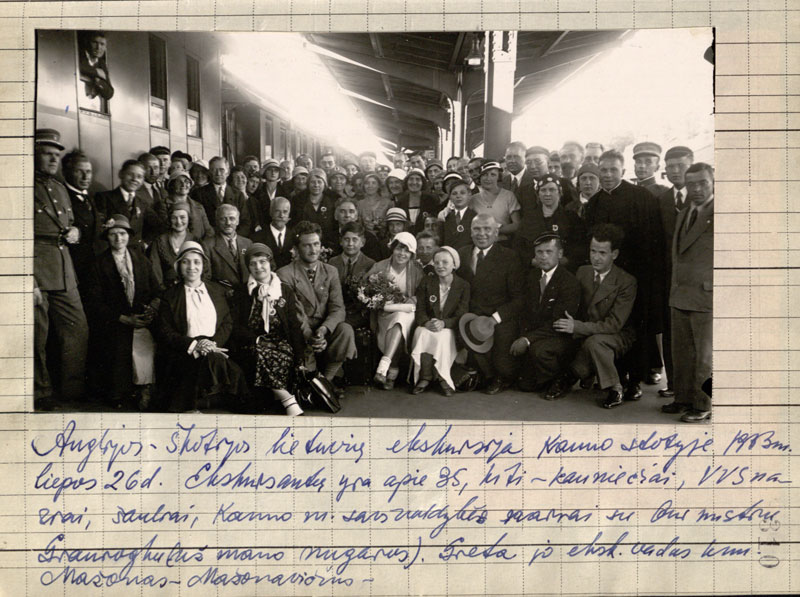 Anglijos-Škotijos lietuvių ekskursija Kauno stotyje 1933 m.
liepos 26 d. Ekskursantų yra apie 35, kiti - kauniečiai, VVS na-
riai, šauliai, Kauno m. savivaldybės nariai su
(už mano nugaros). Greta jo eksk. vadas kun.
Mažonas-Mažonavičius-
310